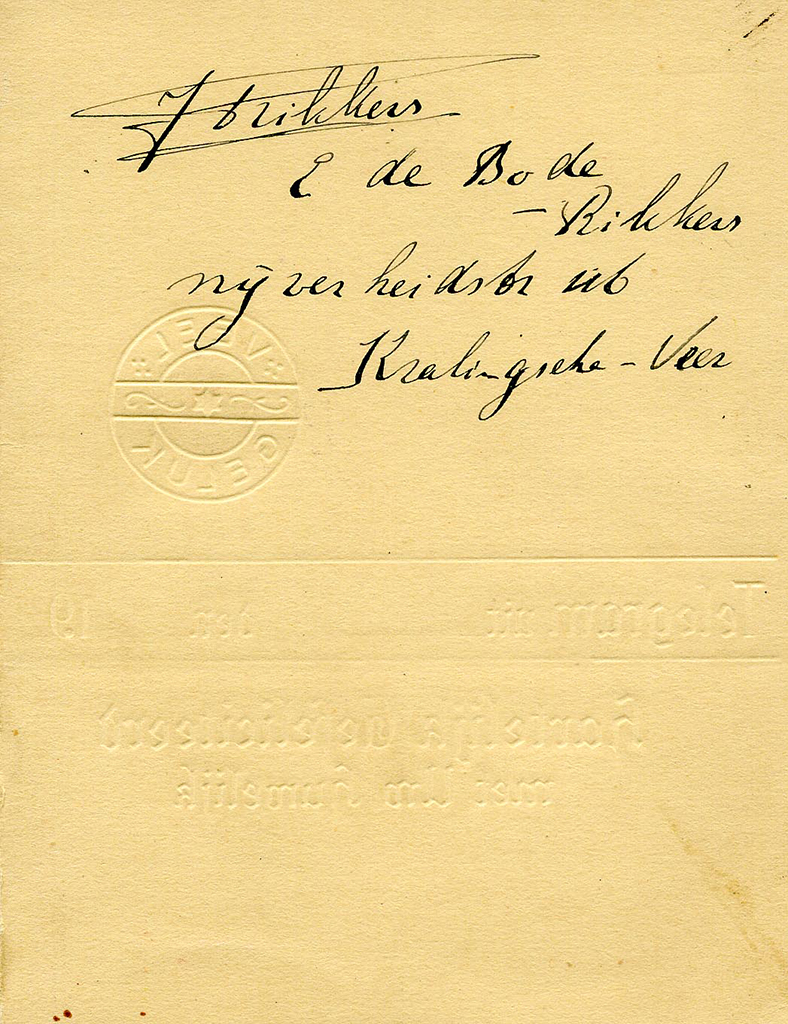 J Rikkers
E de Bode
- Rikkers
nijverheidstr
Kralingsche - Veer
VEEL
GELUK
Telegram uit den 19
Hartelijk Gefeliciteerd
met Uw Huwelijk